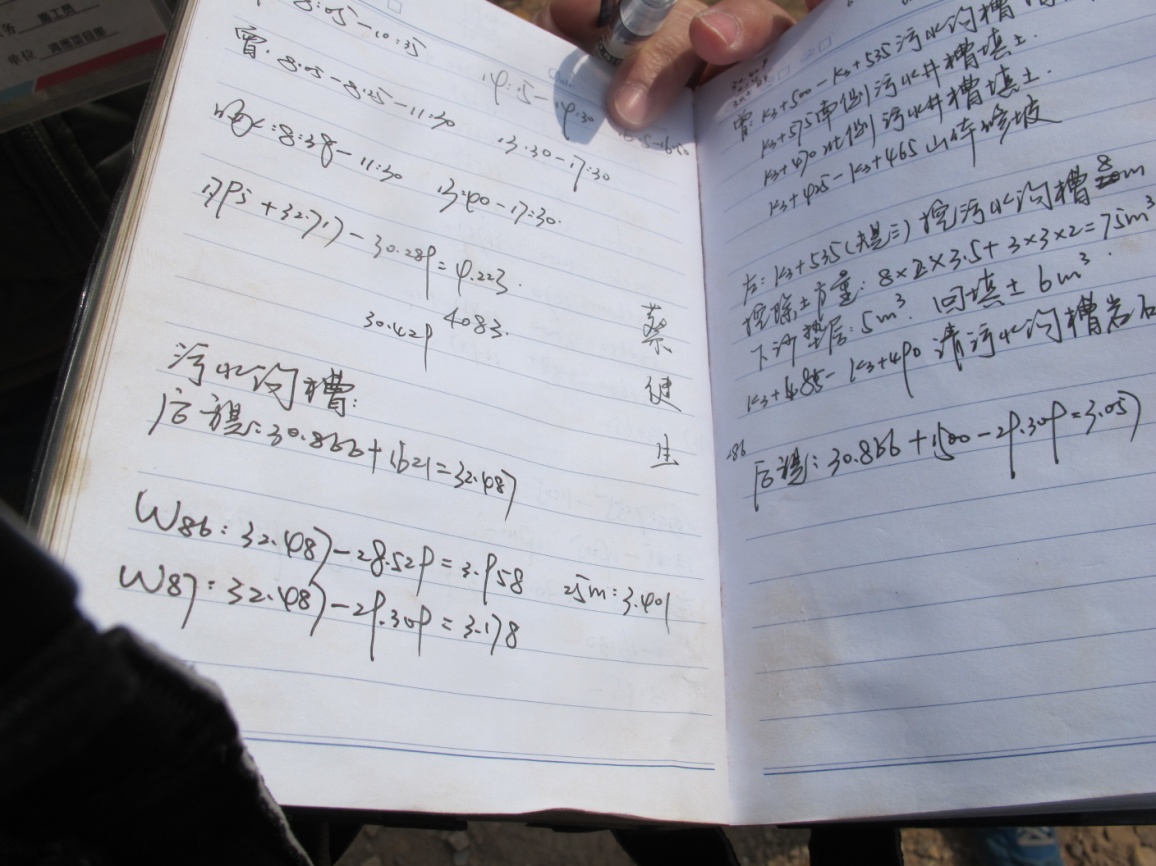 施工员
单位
8:05-10:35
曾:8:05-8:25-11:30 13:30-17:30
14:15-14:30
晚:8:38-11:30 13:40-17:30.
1795+32.717-30.289=4.223.
30.429 4083.
蔡
建
生
污水沟槽:
后视:30.866+1621=32.487
W86:32.487-28.529=3.958 25m:3.401
W87:32.487-29.309=3.178
曾:K3+500-K3+535污水沟槽
K3+575南侧污水井槽填土.
K3+470北侧污水井槽填土.
K3+425-K3+465山体修坡
右:K3+535(大是三)挖污水沟槽8m
挖除土方量:8×2×3.5+3×3×2=75m³
下河垫层:5m³. 回填土6m³.
K3+485-K3+490清污水沟槽岩石
后视:30.866+1500-29.309=3.057